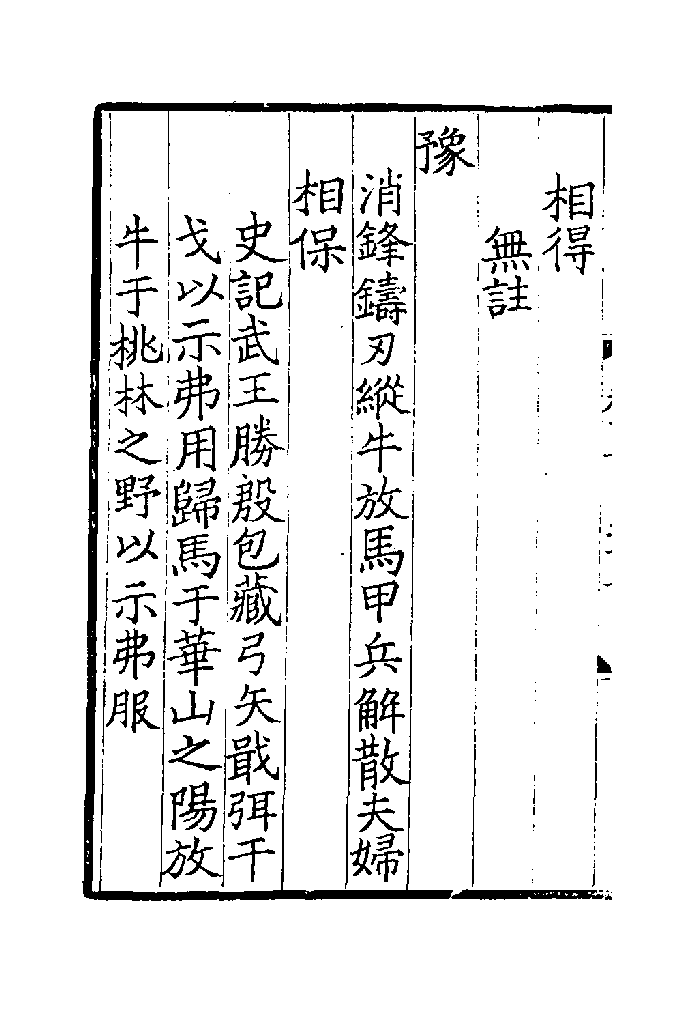 相得
無註
豫
消鋒鑄刃縱牛放馬甲兵解散夫婦
相保
史記武王勝殷包藏弓矢戢弭干
戈以示弗用歸馬于華山之陽放
牛于桃林之野以示弗服